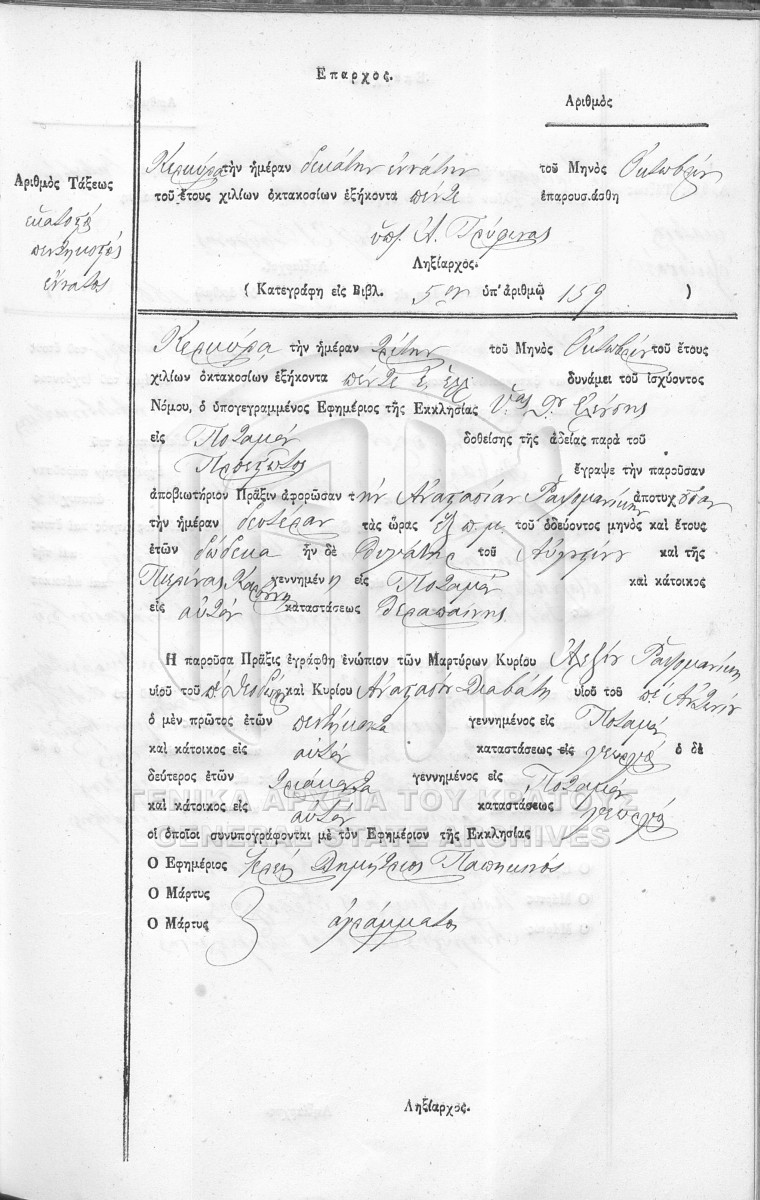 Επαρχος.
Αριθμὸς
Ἀριθμὸς Τάξεως
ἑκατοστὸς
πεντηκοστὸς
ἔννατος
Κερκύρα τὴν ἡμέραν δεκάτην ἐννάτην τοῦ Μηνὸς Ὀκτωβρίου
τοῦ ἔτους χιλίων ὀκτακοσίων ἑξήκοντα πέντε ἐπαρουσιάσθη
ὑπ. Α.
Ληξίαρχος.
( Κατεγράφη εἰς Βιβλ. 5ον ὑπ' ἀριθμῷ 159 )
Κερκύρα τὴν ἡμέραν τρίτην τοῦ Μηνὸς Ὀκτωβρίου τοῦ ἔτους
χιλίων ὀκτακοσίων ἑξήκοντα πέντε δυνάμει τοῦ ἰσχύοντος
Νόμου, ὁ ὑπογεγραμμένος Ἐφημέριος τῆς Ἐκκλησίας
εἰς Ποταμόν δοθείσης τῆς ἀδείας παρὰ τοῦ
ἔγραψε τὴν παροῦσαν
ἀποβιωτήριον Πρᾶξιν ἀφορῶσαν τὴν Ἀναστασίαν ἀποτυχοῦσαν
τὴν ἡμέραν δευτέραν τὰς ὥρας ἕξ π.μ. τοῦ ὁδεύοντος μηνὸς καὶ ἔτους
ἐτῶν δώδεκα ἦν δὲ θυγάτηρ τοῦ καὶ τῆς
γεννημένη εἰς Ποταμόν καὶ κάτοικος
εἰς αὐτόν καταστάσεως θεραπαίνης
Ἡ παροῦσα Πρᾶξις ἐγράφθη ἐνώπιον τῶν Μαρτύρων Κυρίου Ἀλεξίου
υἱοῦ τοῦ καὶ Κυρίου Ἀναστασίου Διαβάτη υἱοῦ τοῦ πε Ἀντωνίου
ὁ μὲν πρῶτος ἐτῶν πεντήκοντα γεννημένος εἰς Ποταμόν
καὶ κάτοικος εἰς αὐτόν καταστάσεως εἰς γεωργός ὁ δὲ
δεύτερος ἐτῶν τριάκοντα γεννημένος εἰς Ποταμόν
καὶ κάτοικος εἰς αὐτόν καταστάσεως γεωργός
οἱ ὁποῖοι συνυπογράφονται μὲ τὸν Ἐφημέριον τῆς Ἐκκλησίας
Ο Ἐφημέριος Ἱερεύς Δημήτριος
Ο Μάρτυς
Ο Μάρτυς ἀγράμματοι
Ληξίαρχος.
ΓΕΝΙΚΑ ΑΡΧΕΙΑ ΤΟΥ ΚΡΑΤΟΥΣ
GENERAL STATE ARCHIVES